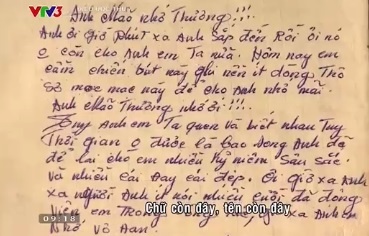 VTV3
Anh Mão nhớ Thương!!!
Anh ơi giờ phút xa Anh Sắp đến Rồi ôi nó
o còn cho Anh em Ta nữa. Hôm nay em
cầm chiếc bút này ghi nên ít dòng Thô
sơ mộc mạc này để cho Anh nhớ mãi.
Anh Mão Thương nhớ ơi!!!
Tuy Anh em Ta quen và biết nhau Tuy
Thời gian o được là bao Song Anh đã
để lại cho em nhiều Kỷ niệm Sâu sắc
và nhiều cái hay cái đẹp. Ôi giờ xa Anh
xa người Anh ít nói nhiều cười đã động
viên em Trong
xa Anh em
Nhớ vô
Chữ còn đây, tên còn đây
09:18